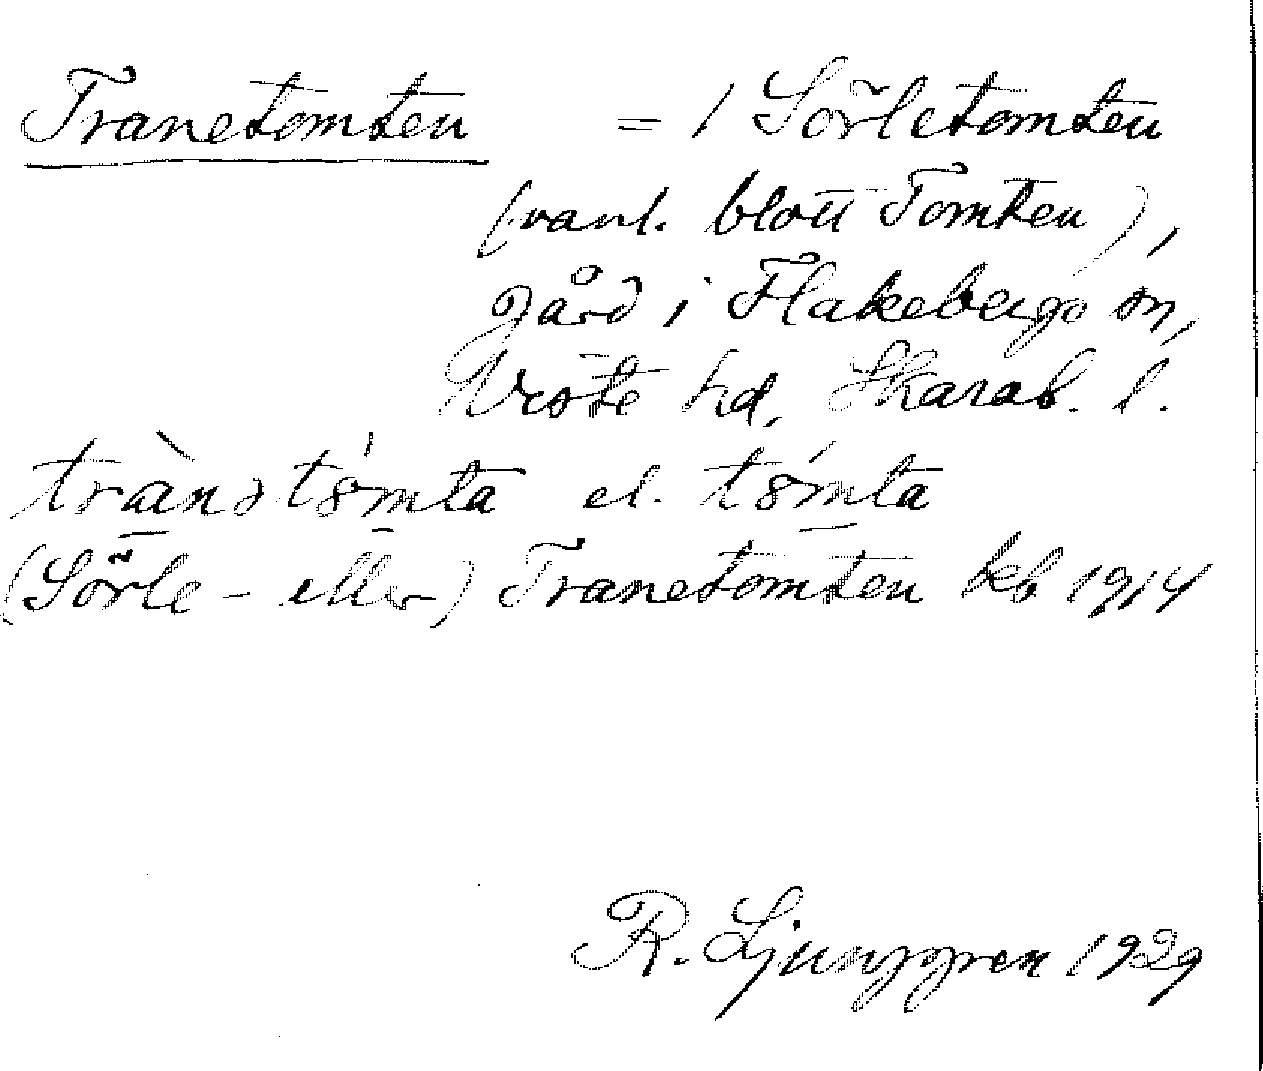 Tranetomten = / Sörletomten
(vanl. blott Tomten),
gård i Flakebergs sn,
Viste hd, Skarab. l.
el.
(Sörle- eller) Tranetomten keb 1914
R. Ljunggren 1929